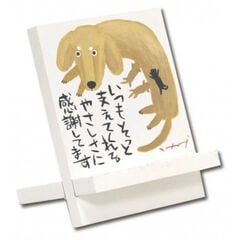 いつもそっと
支えてくれてる
やさしさに
感謝してます